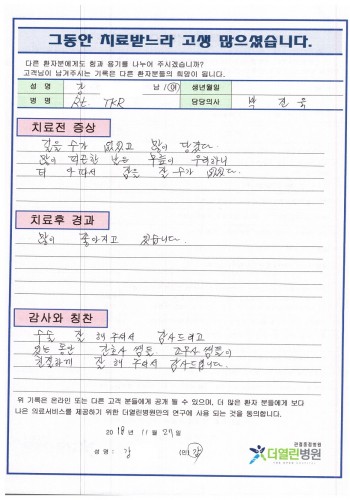 그동안 치료받느라 고생 많으셨습니다.
다른 환자분에게도 힘과 용기를 나누어 주시겠습니까?
고객님이 남겨주시는 기록은 다른 환자분들의 희망이 됩니다.
성 명 김 남 / 여 생년월일
병 명 Rt. TKR 담당의사 박
치료전 증상
걸을 수가 없었고 많이 당겼다.
많이 피곤한 날은 무릎이 우려하니
더 아파서 잠을 잘 수가 없었다.
치료후 경과
많이 좋아지고 있습니다.
감사와 칭찬
수술 잘 해 주셔서 감사드리고
있는 동안 간호사 쌤들 조무사 쌤들이
친절하게 잘 해 주셔서 감사드립니다.
위 기록은 온라인 또는 다른 고객 분들에게 공개 될 수 있으며, 더 많은 환자 분들에게 보다
나은 의료서비스를 제공하기 위한 더열린병원만의 연구에 사용 되는 것을 동의합니다.
2018년 11월 27일
성 명 : 김 (인)
관절중점병원
더열린병원